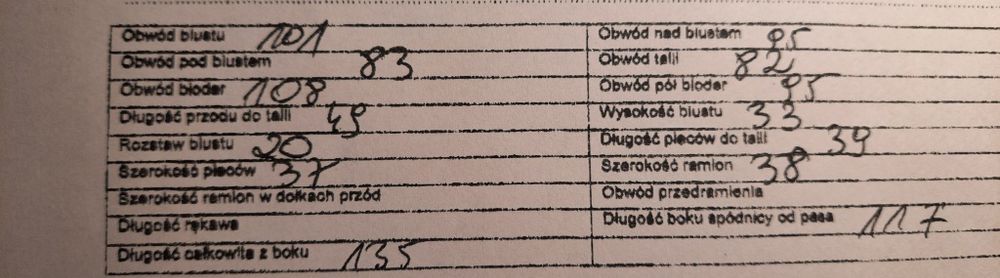 Obwód biustu 101 Obwód nad biustem 95
Obwód pod biustem 83 Obwód talii 82
Obwód bioder 108 Obwód pół bioder 95
Długość przodu do talii 49 Wysokość biustu 33
Rozstaw biustu 20 Długość pleców do talii 39
Szerokość pleców 37 Szerokość ramion 38
Szerokość ramion w dołkach przód Obwód przedramienia
Długość rękawa Długość boku spódnicy od pasa 117
Długość całkowita z boku 135